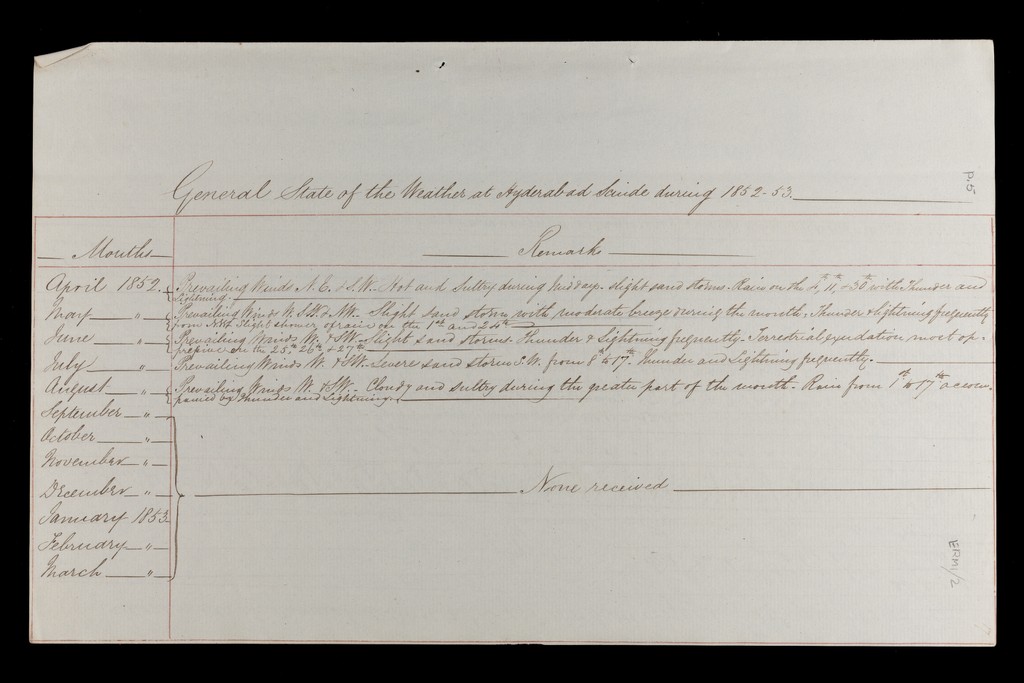 p.5
General State of the Weather at Hyderabad Scinde during 1852-53.
Months Remarks
April 1852 Prevailing Winds N.E. & S.W. Hot and Sultry during midday. slight sand storms. Rain on the 4th, 11th, & 30th with Thunder and
Lightning.
May " Prevailing Winds W. S.W. & NW. Slight Sand storms with moderate breeze during the month, Thunder & lightning frequently
from NW. Slight shower of rain on the 1st and 24th
June " Prevailing Winds W. & SW. Slight Sand storms. Thunder & Lightning frequently. Terrestrial exudation most op-
pressive on the 25th, 26th & 27th
July " Prevailing Winds W. & SW. Severe sand storm S.W. from 8th to 17th. Thunder and Lightning frequently.
August " Prevailing Winds W. & SW. Cloudy and sultry during the greater part of the month. Rain from 1st to 17th accom-
panied by Thunder and Lightning.
September "
October "
November "
December " None received
January 1853
February "
March "
ERM1/2